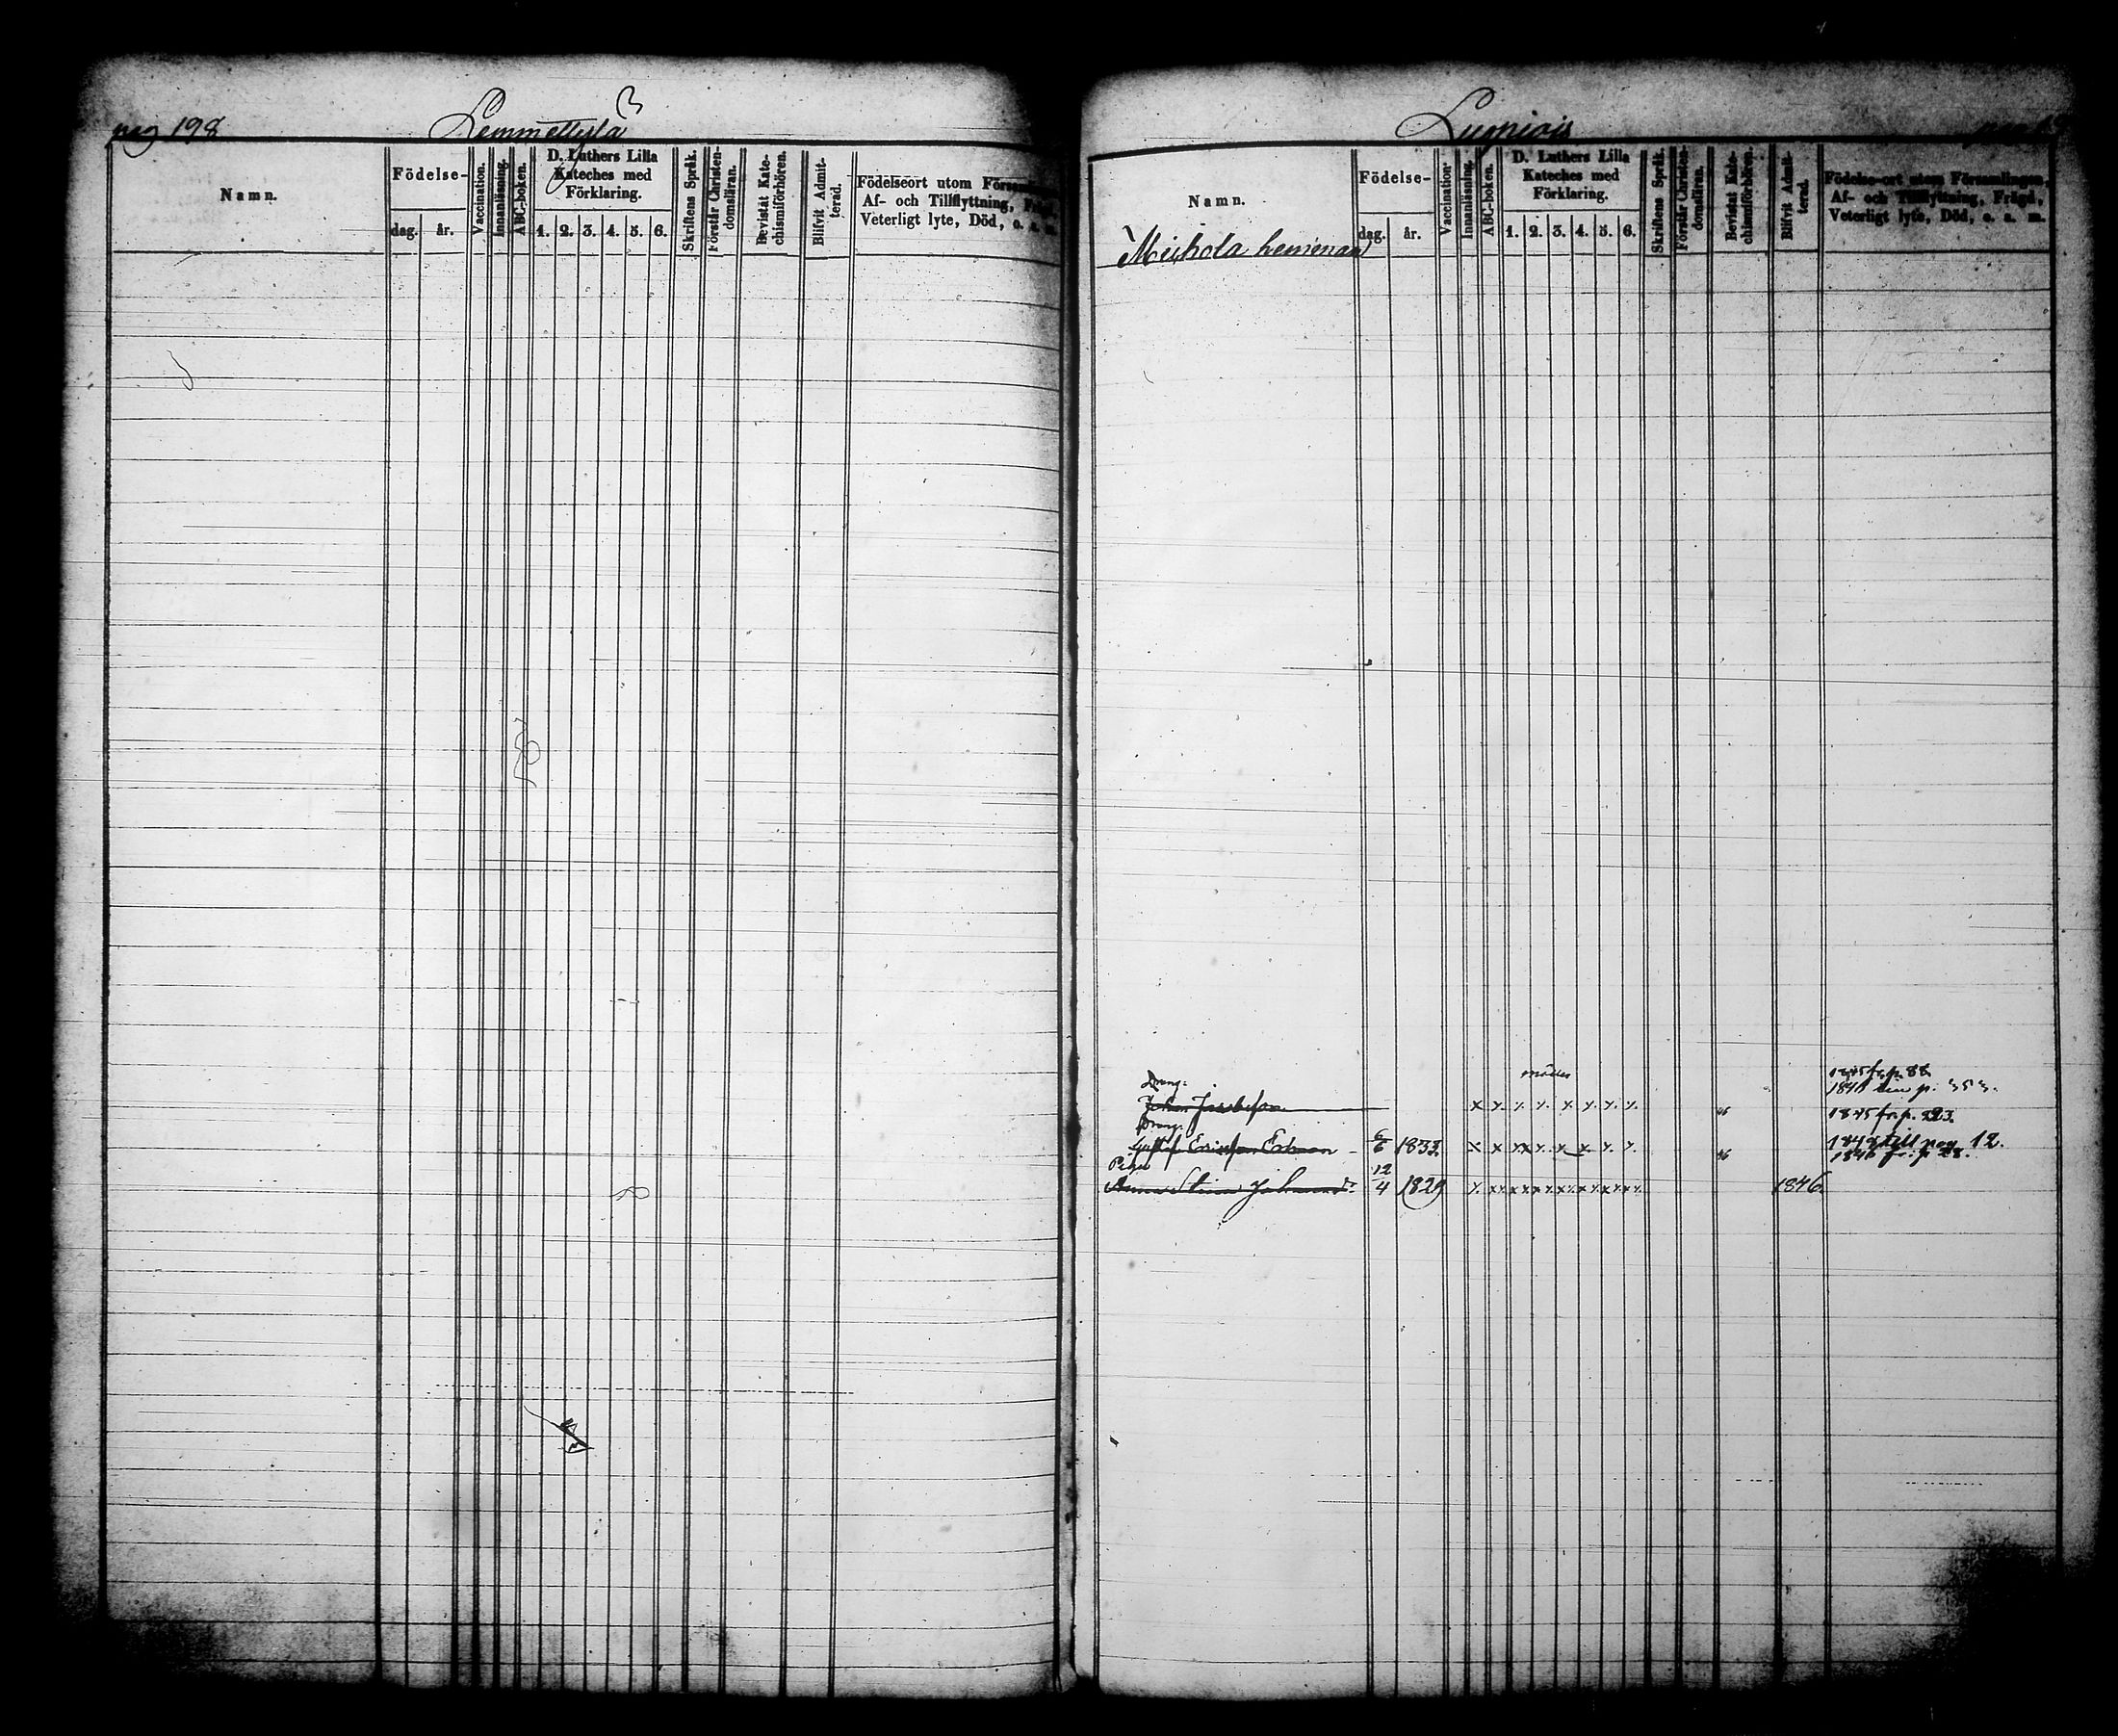 pag 198
Lemmettylä
Namn.
Födelse-
dag.
år.
Vaccination.
Innanläsning.
ABC-boken.
D. Luthers Lilla
Kateches med
Förklaring.
1. 2. 3. 4. 5. 6.
Skriftens Språk.
Förstår Christen-
domsläran.
Bevistat Kate-
chismiförhören.
Blifvit Admit-
terad.
Födelseort utom
Af- och Tillflyttning,
Veterligt lyte, Död, o. a. m.
Lumiais
Namn.
Födelse-
dag.
år.
Vaccination.
Innanläsning.
ABC-boken.
D. Luthers Lilla
Kateches med
Förklaring.
1. 2. 3. 4. 5. 6.
Skriftens Språk.
Förstår Christen-
domsläran.
Bevistat Kate-
chismiförhören.
Blifvit Admit-
terad.
Födelse-ort utom Församlingen,
Af- och Tillflyttning, Frägd,
Veterligt lyte, Död, o. a. m.
hemman
Dreng.
1845 fr. p. 88.
Johan Jacobsson x x x x x x x x 46
Dreng.
1845 fr. p.
Gustaf Ericsson 6/6 1833 x x x x x x x x 46 1848 till pag 12.
1846 fr. p. 28.
Piga
Anna Stina Johansdr 12/4 1829 x x x x x x x x 1846